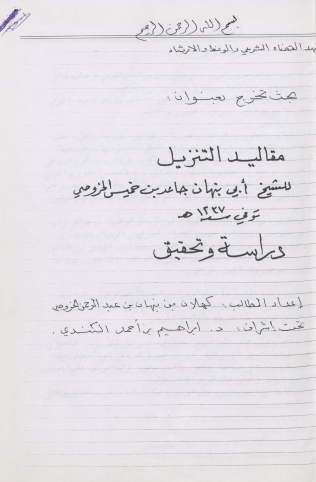 بسم الله الرحمن الرحيم
القضاء الشرعي والوعظ والإرشاد
بحث تخرج بعنوان :
مقاليد التنزيل
للشيخ أبي نبهان جاعد بن خميس الخروصي
توفي سنة ١٢٣٧ هـ
دراسة وتحقيق
إعداد الطالب : كهلان بن نبهان بن عبد الرحمن الخروصي
تحت إشراف : د. ابراهيم بن أحمد الكندي .